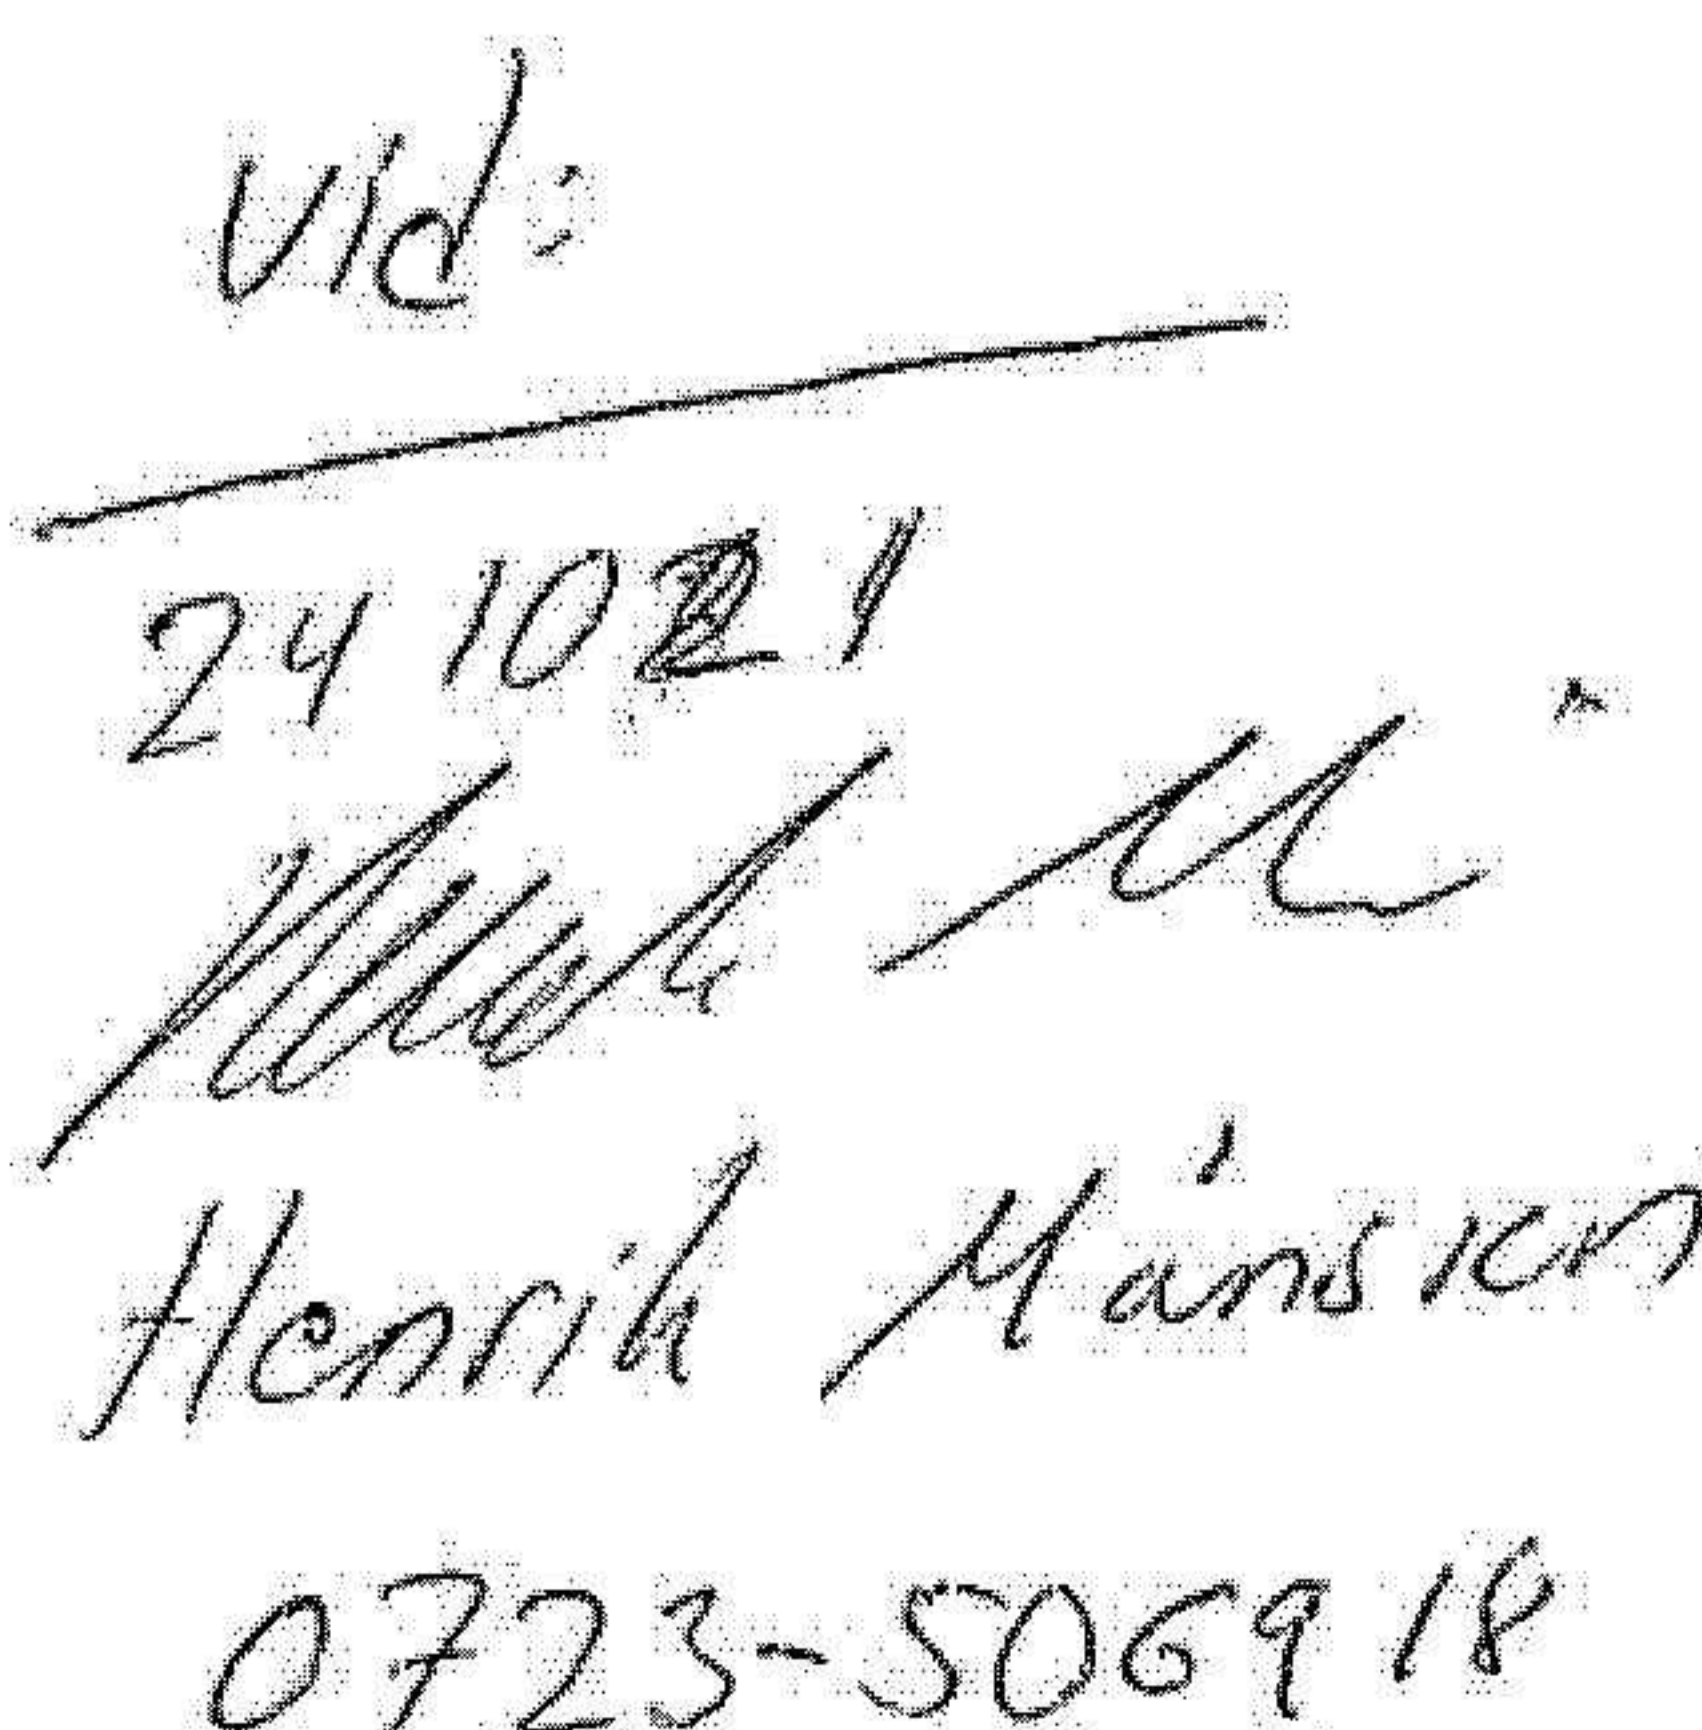 Vid:
24 10 21
Henrik Månsson
0723-506918